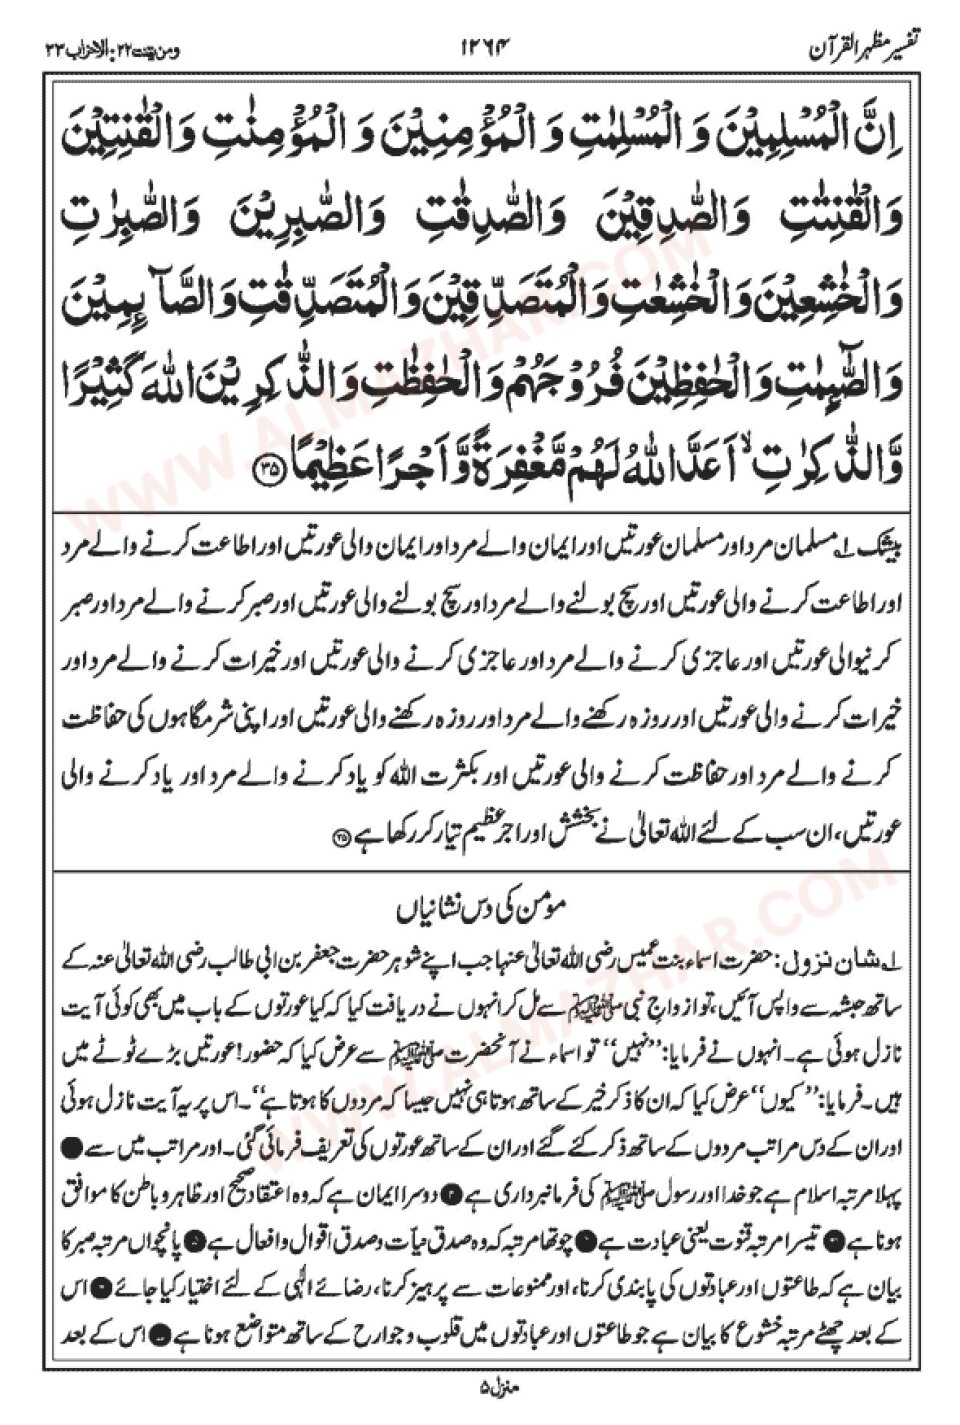 تفسیر مظہر القرآن ۱۲۶۴ ومن یقنت ۲۲: الاحزاب ۳۳
اِنَّ الْمُسْلِمِيْنَ وَ الْمُسْلِمٰتِ وَ الْمُؤْمِنِيْنَ وَ الْمُؤْمِنٰتِ وَالْقٰنِتِيْنَ
وَالْقٰنِتٰتِ وَالصّٰدِقِيْنَ وَالصّٰدِقٰتِ وَالصّٰبِرِيْنَ وَالصّٰبِرٰتِ
وَالْخٰشِعِيْنَ وَالْخٰشِعٰتِ وَالْمُتَصَدِّقِيْنَ وَالْمُتَصَدِّقٰتِ وَالصَّآئِمِيْنَ
وَالصّٰٓئِمٰتِ وَالْحٰفِظِيْنَ فُرُوْجَهُمْ وَالْحٰفِظٰتِ وَالذّٰكِرِيْنَ اللّٰهَ كَثِيْرًا
وَّالذّٰكِرٰتِ ۙ اَعَدَّ اللّٰهُ لَهُمْ مَّغْفِرَةً وَّاَجْرًا عَظِيْمًا ۳۵
بیشک ۱؎ مسلمان مرد اور مسلمان عورتیں اور ایمان والے مرد اور ایمان والی عورتیں اور اطاعت کرنے والے مرد
اور اطاعت کرنے والی عورتیں اور سچ بولنے والے مرد اور سچ بولنے والی عورتیں اور صبر کرنے والے مرد اور صبر
کرنیوالی عورتیں اور عاجزی کرنے والے مرد اور عاجزی کرنے والی عورتیں اور خیرات کرنے والے مرد اور
خیرات کرنے والی عورتیں اور روزہ رکھنے والے مرد اور روزہ رکھنے والی عورتیں اور اپنی شرمگاہوں کی حفاظت
کرنے والے مرد اور حفاظت کرنے والی عورتیں اور بکثرت اللہ کو یاد کرنے والے مرد اور یاد کرنے والی
عورتیں، ان سب کے لئے اللہ تعالیٰ نے بخشش اور اجر عظیم تیار کر رکھا ہے ۳۵
مومن کی دس نشانیاں
۱؎ شان نزول: حضرت اسماء بنت عمیس رضی اللہ تعالیٰ عنہا جب اپنے شوہر حضرت جعفر بن ابی طالب رضی اللہ تعالیٰ عنہ کے
ساتھ حبشہ سے واپس آئیں، تو ازواجِ نبی ﷺ سے مل کر انہوں نے دریافت کیا کہ کیا عورتوں کے باب میں بھی کوئی آیت
نازل ہوئی ہے۔ انہوں نے فرمایا: ’’نہیں‘‘ تو اسماء نے آنحضرت ﷺ سے عرض کیا کہ حضور! عورتیں بڑے ٹوٹے میں
ہیں۔ فرمایا: ’’کیوں‘‘ عرض کیا کہ ان کا ذکر خیر کے ساتھ ہوتا ہی نہیں جیسا کہ مردوں کا ہوتا ہے‘‘۔ اس پر یہ آیت نازل ہوئی
اور ان کے دس مراتب مردوں کے ساتھ ذکر کئے گئے اور ان کے ساتھ عورتوں کی تعریف فرمائی گئی۔ اور مراتب میں سے
پہلا مرتبہ اسلام ہے جو خدا اور رسول ﷺ کی فرمانبرداری ہے دوسرا ایمان ہے کہ وہ اعتقاد صحیح اور ظاہر و باطن کا موافق
ہونا ہے تیسرا مرتبہ قنوت یعنی عبادت ہے چوتھا مرتبہ کہ وہ صدق نیات و صدق اقوال و افعال ہے پانچواں مرتبہ صبر کا
بیان ہے کہ طاعتوں اور عبادتوں کی پابندی کرنا، اور ممنوعات سے پرہیز کرنا، رضائے الٰہی کے لئے اختیار کیا جائے اس
کے بعد چھٹے مرتبہ خشوع کا بیان ہے جو طاعتوں اور عبادتوں میں قلوب و جوارح کے ساتھ متواضع ہونا ہے اس کے بعد
منزل ۵
WWW.ALMAZHAR.COM
WWW.ALMAZHAR.COM